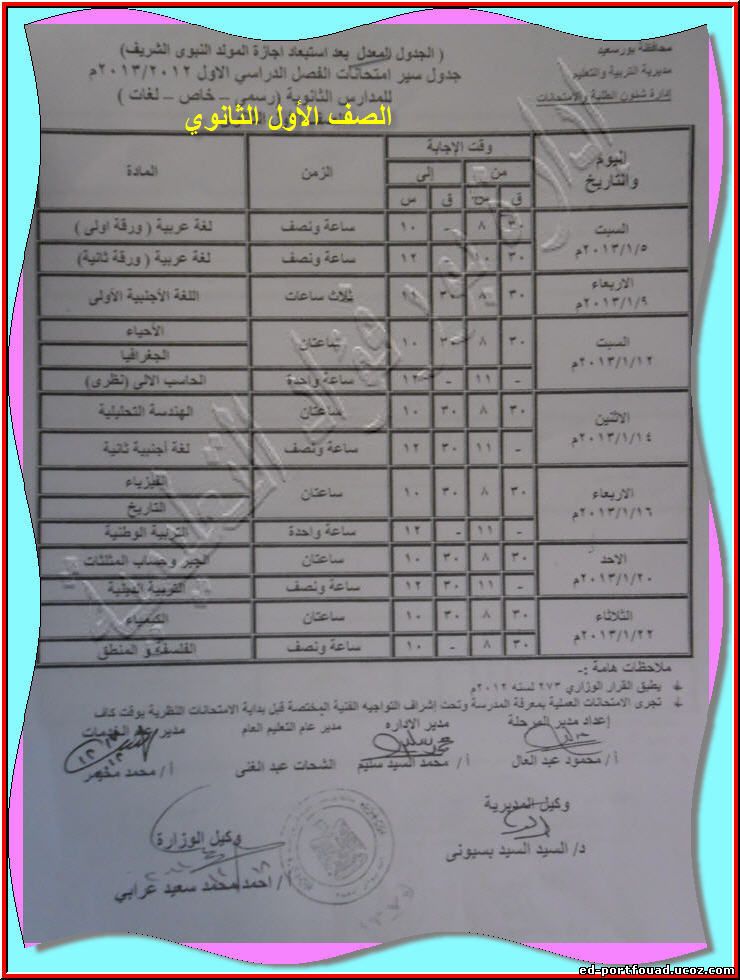 محافظة بورسعيد
مديرية التربية والتعليم
إدارة شئون الطلبة والامتحانات
( الجدول المعدل بعد استبعاد اجازة المولد النبوى الشريف)
جدول سير امتحانات الفصل الدراسي الاول ٢٠١٣/٢٠١٢م
للمدارس الثانوية (رسمي – خاص – لغات )
الصف الأول الثانوي
اليوم والتاريخ | وقت الإجابة | الزمن | المادة
من | إلى
ق | س | ق | س
السبت ٢٠١٣/١/٥م | ٣٠ | ٨ | - | ١٠ | ساعة ونصف | لغة عربية ( ورقة اولى )
٣٠ | ١٠ | - | ١٢ | ساعة ونصف | لغة عربية ( ورقة ثانية )
الاربعاء ٢٠١٣/١/٩م | ٣٠ | ٨ | ٣٠ | ثلاث ساعات | اللغة الأجنبية الأولى
السبت ٢٠١٣/١/١٢م | ٣٠ | ٨ | ٣٠ | ١٠ | ساعتان | الأحياء
الجغرافيا
- | ١١ | - | ١٢ | ساعة واحدة | الحاسب الالى (نظرى)
الاثنين ٢٠١٣/١/١٤م | ٣٠ | ٨ | ٣٠ | ١٠ | ساعتان | الهندسة التحليلية
- | ١١ | ٣٠ | ١٢ | ساعة ونصف | لغة أجنبية ثانية
الاربعاء ٢٠١٣/١/١٦م | ٣٠ | ٨ | ٣٠ | ١٠ | ساعتان | الفيزياء
التاريخ
- | ١١ | - | ١٢ | ساعة واحدة | التربية الوطنية
الاحد ٢٠١٣/١/٢٠م | ٣٠ | ٨ | ٣٠ | ١٠ | ساعتان | الجبر وحساب المثلثات
- | ١١ | ٣٠ | ١٢ | ساعة ونصف | التربية الدينية
الثلاثاء ٢٠١٣/١/٢٢م | ٣٠ | ٨ | ٣٠ | ١٠ | ساعتان | الكيمياء
٣٠ | ٨ | - | ١٠ | ساعة ونصف | الفلسفة و المنطق
ملاحظات هامة :-
يطبق القرار الوزاري ٢٧٣ لسنه ٢٠١٢م
تجرى الامتحانات العملية بمعرفة المدرسة وتحت إشراف التواجيه الفنية المختصة قبل بداية الامتحانات النظرية بوقت كاف
إعداد مدير المرحلة | مدير الاداره | مدير عام التعليم العام | مدير عام الخدمات
أ / محمود عبد العال | أ / محمد السيد سليم | الشحات عبد الغنى | أ / محمد مخيمر
وكيل المديرية
د/ السيد السيد بسيونى
وكيل الوزارة
أ / احمد محمد سعيد عرابي
ed-portfouad.ucoz.com